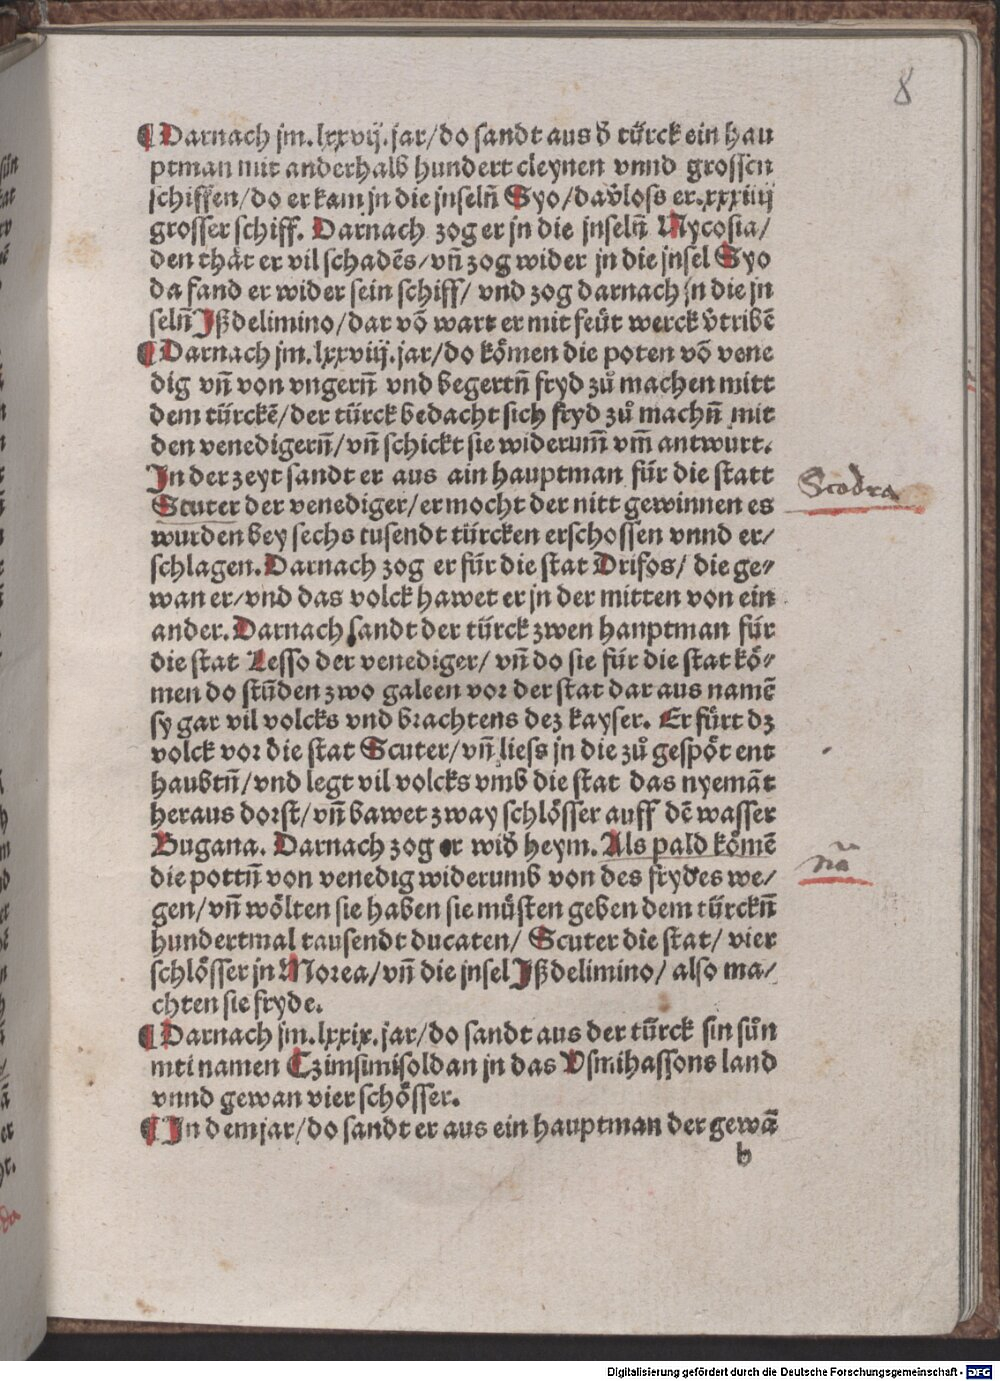 8
¶ Darnach jm.lxxvij.jar/do sandt aus d̕ türck ein hau
ptman mit anderhalb hundert cleynen vnnd grossen
schiffen/do er kam jn die jnseln̄ Syo/da v̕loss er.xxxiiij
grosser schiff. Darnach zog er jn die jnseln̄ Mycosia/
den thät er vil schadēs/vn̄ zog wider jn die jnsel Syo
da fand er wider sein schiff/ vnd zog darnach jn die jn
seln̄ Jßdelimino/dar vō wart er mit feüt werck v̕tribē
¶ Darnach jm.lxxviij.jar/do kömen die poten vō vene
dig vn̄ von vngern̄ vnd begertn̄ fryd zů machen mitt
dem türckē/der türck bedacht sich fryd zů machn̄ mit
den venedigern̄/vn̄ schickt sie widerum̄ vm̄ antwurt.
Jn der zeyt sandt er aus ain hauptman für die statt
Scuter der venediger/er mocht der nitt gewinnen es
wurden bey sechs tusendt türcken erschossen vnnd er/
schlagen. Darnach zog er für die stat Drifos/ die ge⸗
wan er/vnd das volck hawet er jn der mitten von ein
ander. Darnach sandt der türck zwen hanptman für
die stat Lesso der venediger/ vn̄ do sie für die stat kö⸗
men do stūden zwo galeen vor der stat dar aus namē
sy gar vil volcks vnd brachtens dez kayser. Er fürt dz
volck vor die stat Scuter/vn̄ liess jn die zů gespöt ent
haubtn̄/vnd legt vil volcks vmb die stat das nyemāt
heraus dorst/vn̄ bawet zway schlösser auff dē wasser
Bugana. Darnach zog er wid̕ heym. Als pald kömē
die pottn̄ von venedig widerumb von des frydes we/
gen/vn̄ wölten sie haben sie müsten geben dem türckn̄
hundertmal tausendt ducaten/ Scuter die stat/ vier
schlösser jn Morea/vn̄ die jnsel Jßdelimino/ also ma/
chten sie fryde.
¶ Darnach jm.lxxix.jar/do sandt aus der türck sin sůn
mti namen Czimsimisoldan jn das Vsmihassons land
vnnd gewan vier schösser.
¶ Jn dem jar/do sandt er aus ein hauptman der gewā
b
Scodra
Digitalisierung gefördert durch die Deutsche Forschungsgemeinschaft - DFG